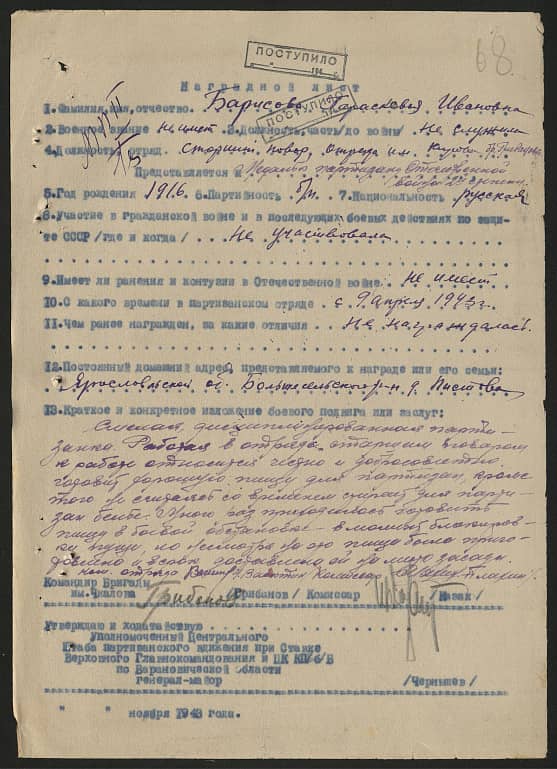 68
ПОСТУПИЛО
Наградной лист
ПОСТУПИЛО
1. Фамилия, имя, отчество. Барисова Парасковья Ивановна
2. Военное звание не имеет 3. Должность, часть /до войны/ Не служила
4. Должность, отряд. старший повар, отряда им.
Представляется к Медали партизану Отечественной
войны
5. Год рождения 1916. 6. Партийность б/п. 7. Национальность русская
8. Участие в Гражданской войне и в последующих боевых действиях по защи-
те СССР /где и когда/ Не участвовала
9. Имеет ли ранения и контузии в Отечественной войне. Не имеет
10. С какого времени в партизанском отряде. с 9 апреля 1943 г.
11. Чем ранее награжден, за какие отличия. Не награждалась.
12. Постоянный домашний адрес, представляемого к награде или его семьи:
Ярославльской об. Большесельского р-н д.
13. Краткое и конкретное изложение боевого подвига или заслуг:
Смелая, дисциплинированная парти-
занка. Работая в отряде старшим поваром
к работе относится честно и добросовестно.
готовит хорошую пищу для партизан, кроме
того не считаясь со временем стирает для парти-
зан белье. Много раз приходилось готовить
пищу в боевой обстановке - в момент блокиров-
ки пущи, но несмотря на это пища была приго-
товлена и всегда доставлена ей на место засады.
ком. отряда Комиссар
Командир Бригады
им. Чкалова Грибанов /Грибанов/ Комиссар /Казак/
Утверждаю и ходатайствую
Уполномоченный Центрального
Штаба партизанского движения при Ставке
Верховного Главнокомандования и ЦК КП/б/Б
по Барановической области
генерал-майор /Чернышев/
" " ноября 1943 года.